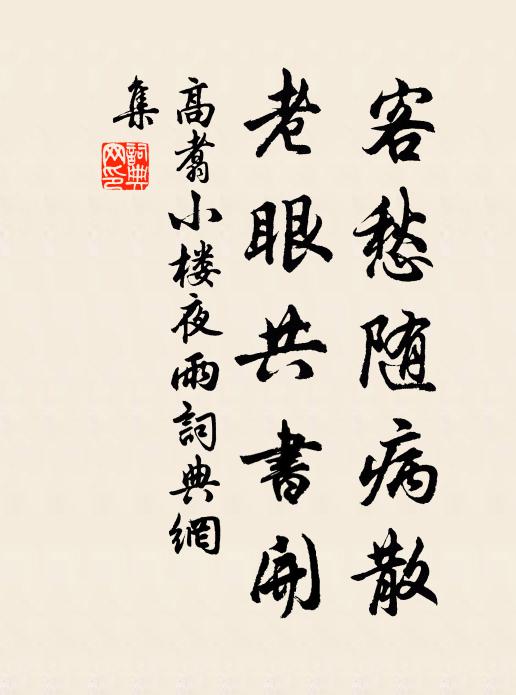 客愁随病散
老眼共書開
高翥小楼夜雨詞典網
集
詞典網印